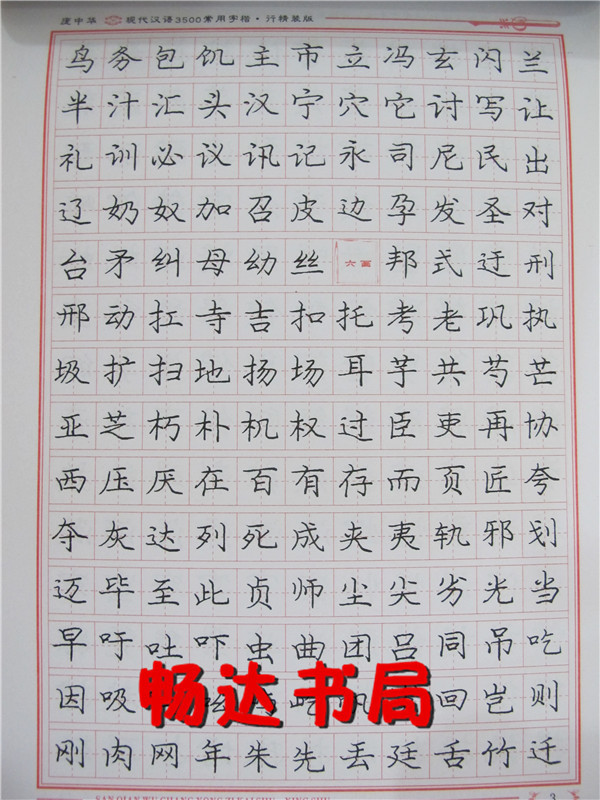 庹中华 现代汉语3500常用字楷·行精装版
鸟务包饥主市立冯玄闪兰
半汁汇头汉宁穴它讨写让
礼训必议讯记永司尼民出
辽奶奴加召皮边孕发圣对
台矛纠母幼丝 六画 邦式迂刑
邢动扛寺吉扣托考老巩执
圾扩扫地扬场耳芋共芍芒
亚芝朽朴机权过臣吏再协
西压厌在百有存而页匠夸
夺灰达列死成夹夷轨邪划
迈毕至此贞师尘尖劣光当
早吁吐吓虫曲团吕同吊吃
因吸屹回岂则
畅达书局
刚肉网年朱先丢廷舌竹迁
3